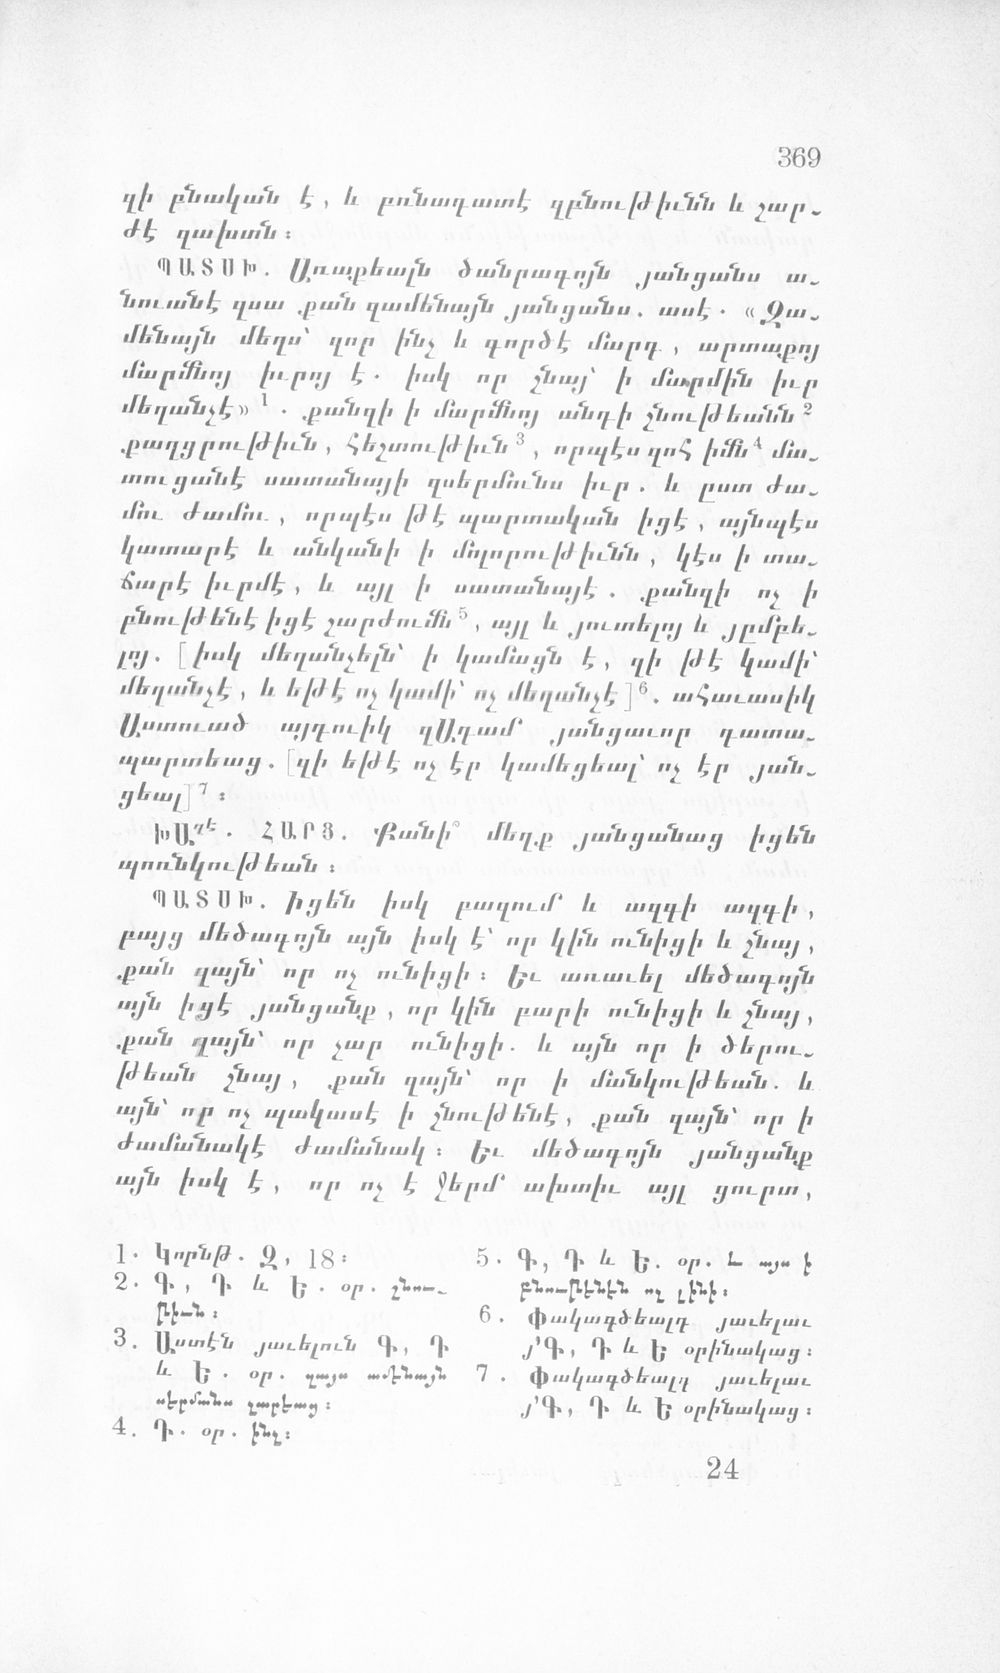 369
զի բնական է, և բռնադատէ զբնութիւնն և շար-
ժէ զախտն։
ՊԱՏՍԽ. Առաքեալն ծանրագոյն յանցանս ա-
նուանէ զսա քան զամենայն յանցանս. ասէ. «Զա-
մենայն մեղս՝ զոր ինչ և գործէ մարդ, արտաքոյ
մարմնոյ իւրոյ է. իսկ որ շնայ՝ ի մարմին իւր
մեղանչէ» 1. քանզի ի մարմնոյ անդի շնութեանն 2
քաղցրութիւն, հեշտութիւն 3, որպէս զոհ իմն 4 մա-
տուցանէ սատանայի զսերմունս իւր. և ըստ ժա-
մու ժամու, որպէս թէ պարտական իցէ, այնպէս
կատարէ և անկանի ի մոլորութիւնն, կէս ի տա-
ճարէ իւրմէ, և այլ ի սատանայէ. քանզի ոչ ի
բնութենէ իցէ շարժումն 5, այլ և յուտելոյ և յըմպե-
լոյ. [իսկ մեղանչելն՝ ի կամացն է, զի թէ կամի՝
մեղանչէ, և եթէ ոչ կամի՝ ոչ մեղանչէ] 6. ահաւասիկ
Աստուած այդուիկ զԱդամ յանցաւոր դատա-
պարտեաց. [զի եթէ ոչ էր կամեցեալ՝ ոչ էր յան-
ցեալ] 7։
ԽԱ ՂԷ. ՀԱՐՑ. Քանի՞ մեղք յանցանաց իցեն
պոռնկութեան։
ՊԱՏՍԽ. Իցեն իսկ բազում և ազգի ազգի,
բայց մեծագոյն այն իսկ է՝ որ կին ունիցի և շնայ,
քան զայն՝ որ ոչ ունիցի։ Եւ առաւել մեծագոյն
այն իցէ յանցանք, որ կին բարի ունիցի և շնայ,
քան զայն՝ որ չար ունիցի. և այն որ ի ծերու-
թեան շնայ, քան զայն՝ որ ի մանկութեան. և
այն՝ որ ոչ պակասէ ի շնութենէ, քան զայն՝ որ ի
ժամանակէ ժամանակ։ Եւ մեծագոյն յանցանք
այն իսկ է, որ ոչ է ջերմ ախտիւ այլ ցուրտ,
1. Կորնթ. Զ, 18։
2. Գ, Դ և Ե. օր. շնու-
թիւն։
3. Աստէն յաւելուն Գ, Դ
և Ե. օր. զայս ամենայն
սերմանս չարեաց։
4. Դ. օր. ինչ։
5. Գ, Դ և Ե. օր. և այս ի
բնութենէն ոչ լինի։
6. Փակագծեալդ յաւելաւ
յ՚Գ, Դ և Ե օրինակաց։
7. Փակագծեալդ յաւելաւ
յ՚Գ, Դ և Ե օրինակաց։
24